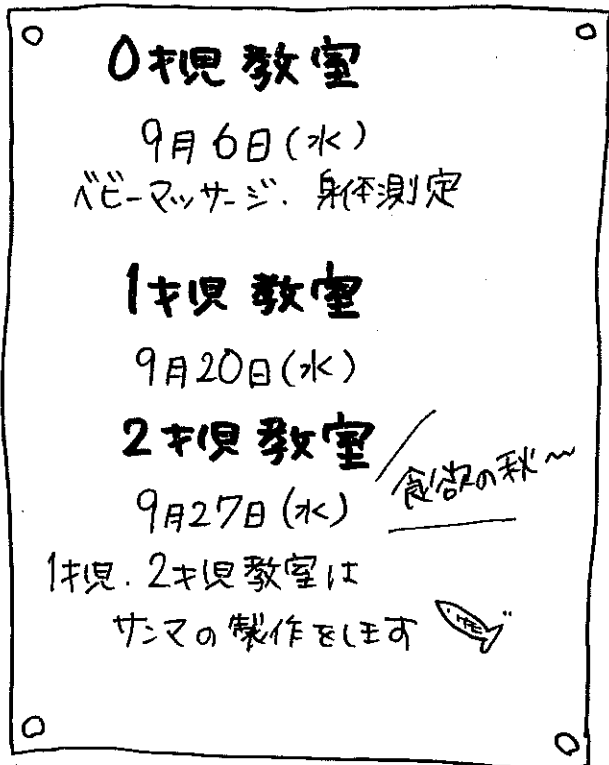 0才児教室
9月6日(水)
ベビーマッサージ.身体測定
1才児教室
9月20日(水)
2才児教室
9月27日(水)
食欲の秋～
1才児.2才児教室は
サンマの製作をします